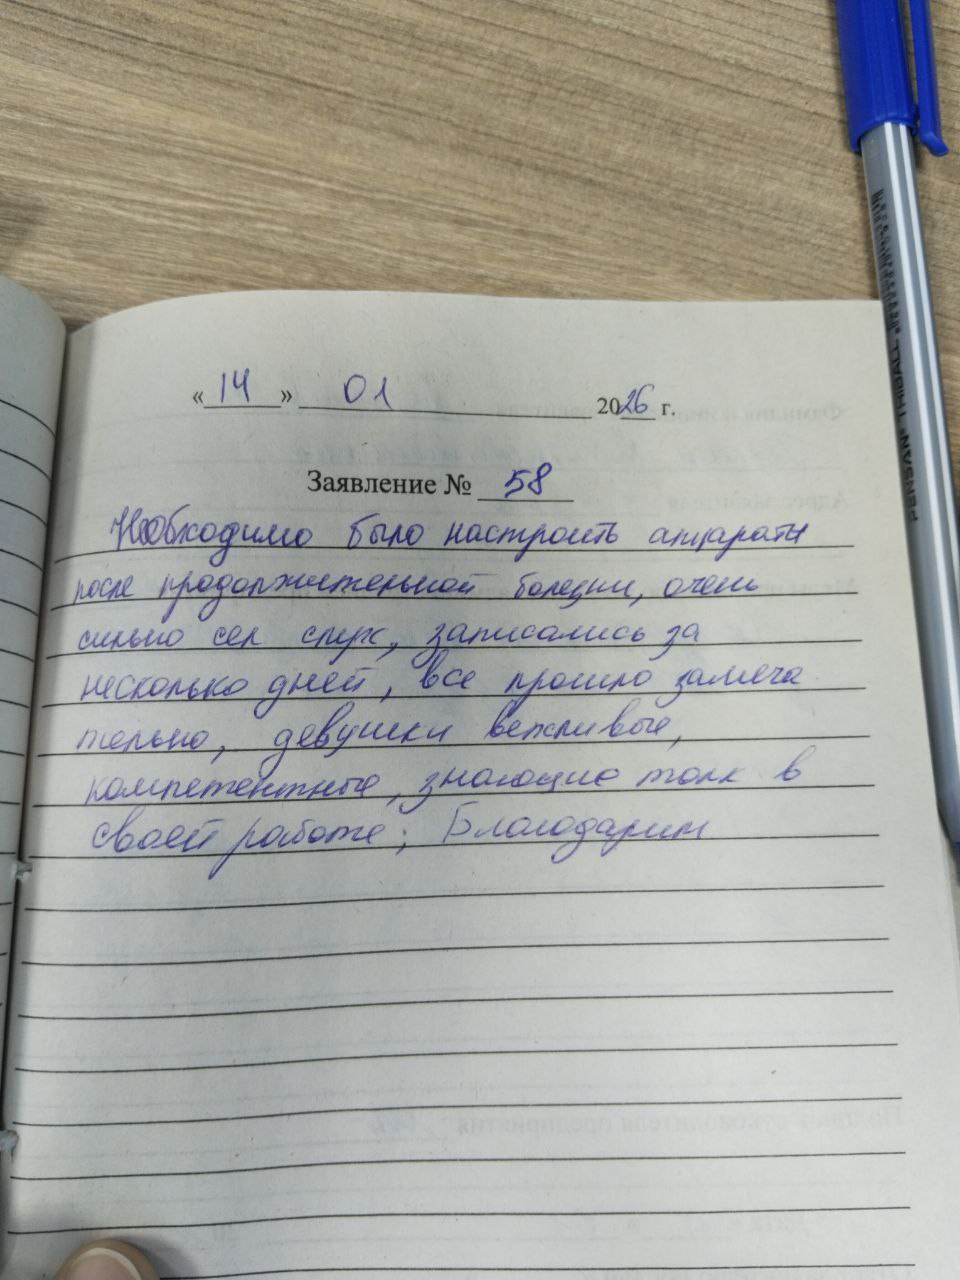 « 14 » 01 2026 г.
Заявление № 58
Необходимо было настроить аппараты
после продолжительной болезни, очень
сильно сел слух, записались за
несколько дней, все прошло замеча
тельно, девушки вежливые,
компетентные, знающие толк в
своей работе; Благодарим
PENSAN